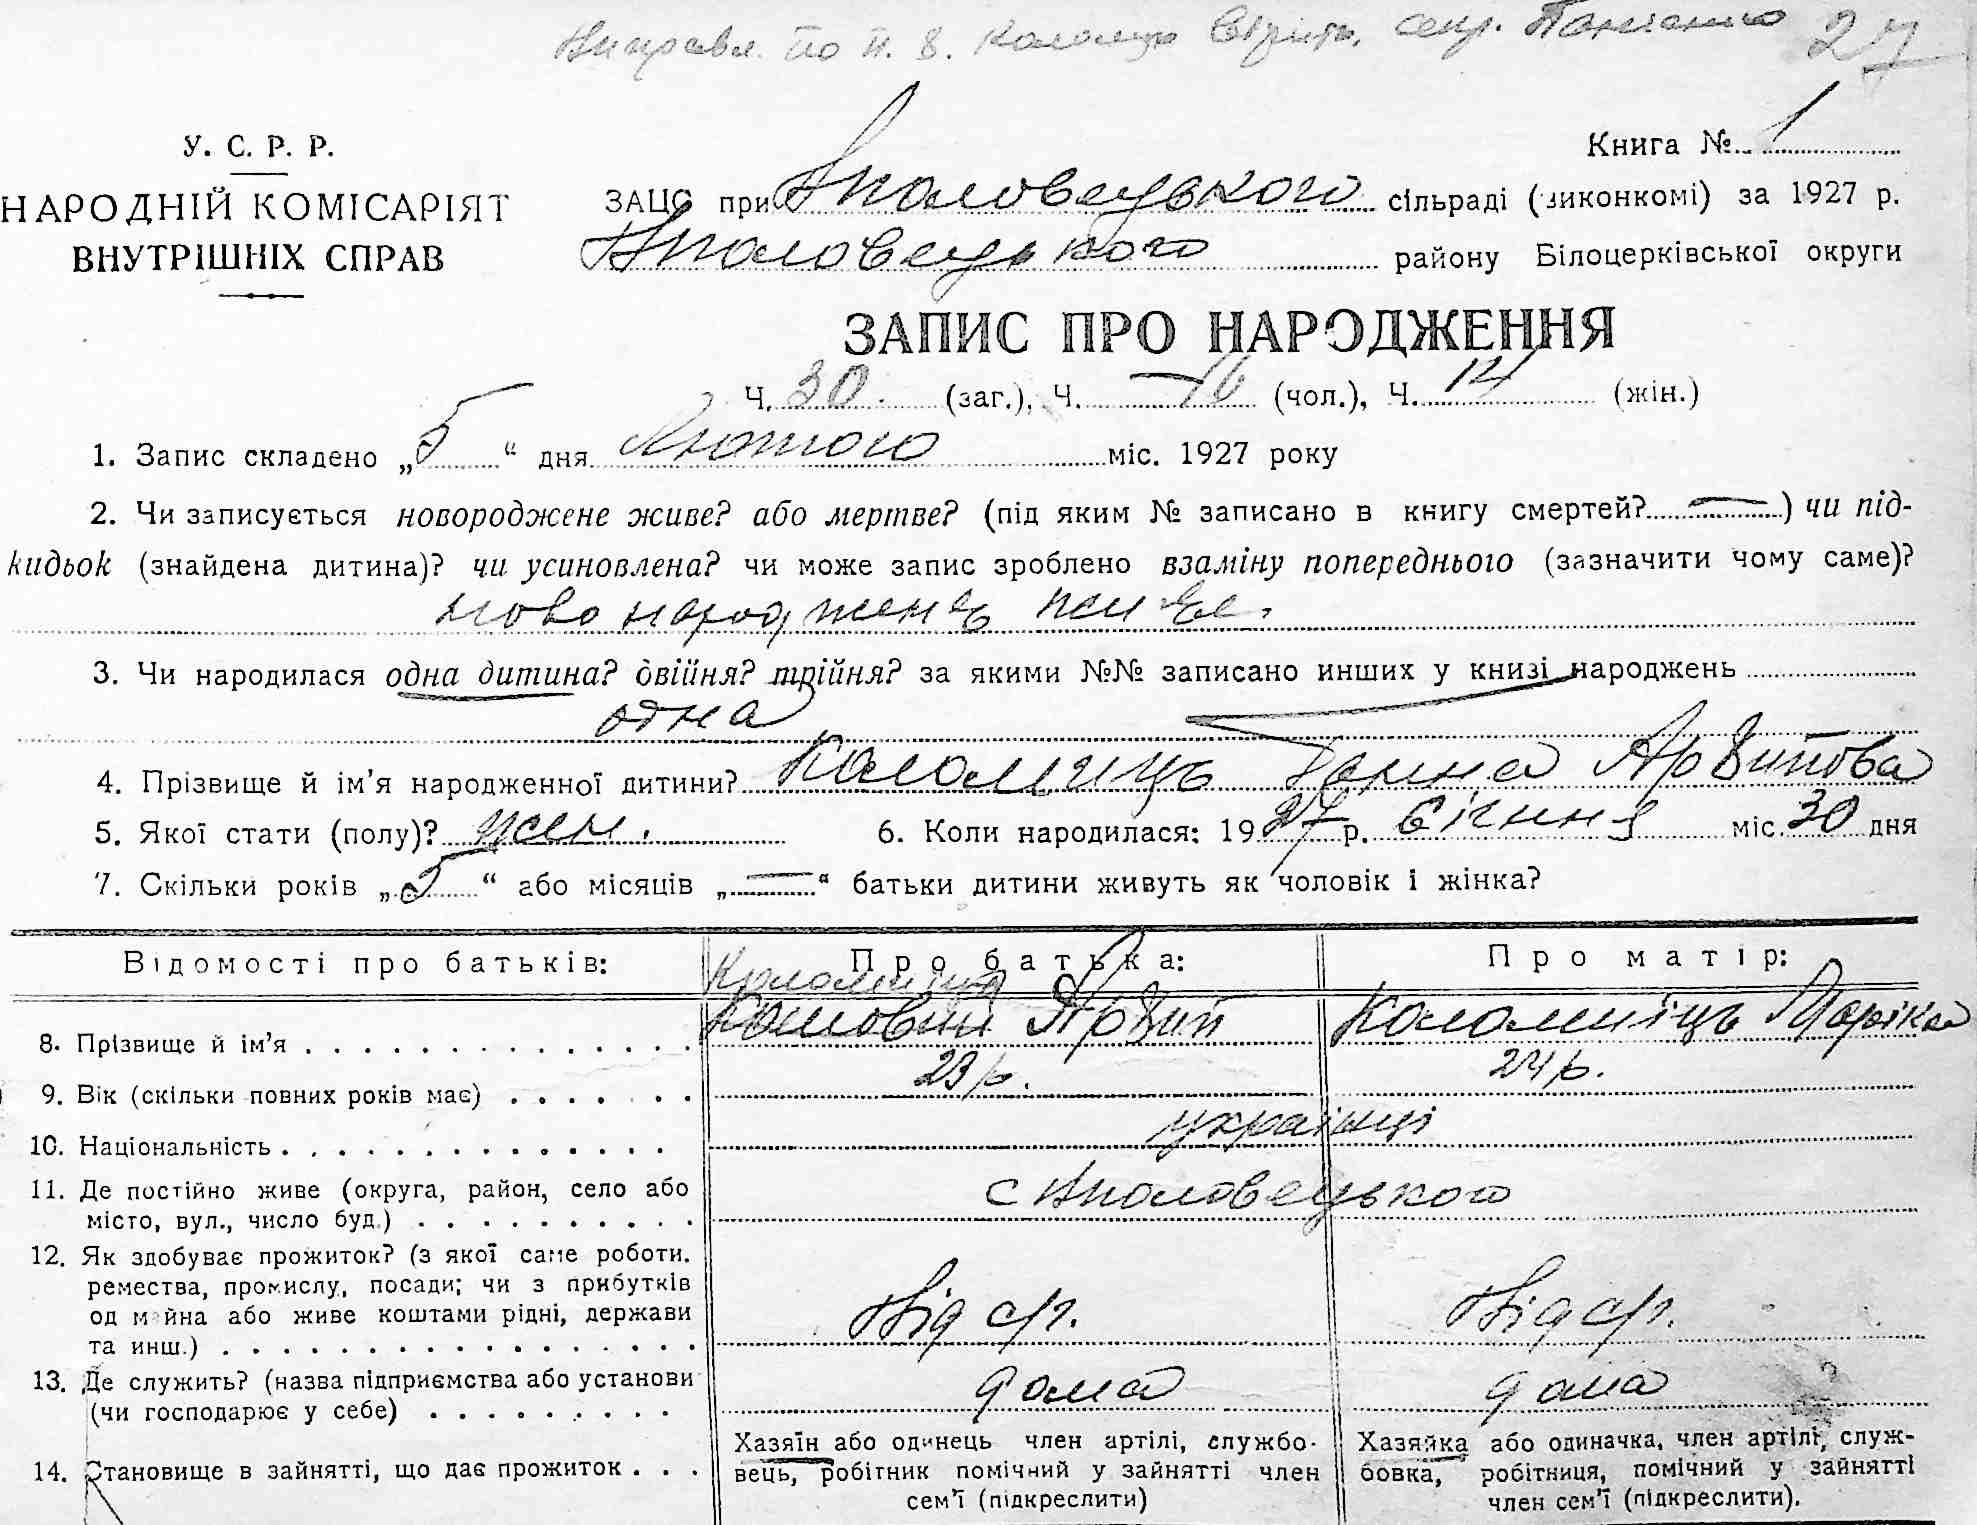 Виправл. по п. 8. Коломієць Вірить, секр. Панченко 27
У. С. Р. Р.
НАРОДНІЙ КОМІСАРІЯТ
ВНУТРІШНІХ СПРАВ
Книга № 1
ЗАЦС при Яполовецького сільраді (виконкомі) за 1927 р.
Яполовецького району Білоцерківської округи
ЗАПИС ПРО НАРОДЖЕННЯ
Ч. 30. (заг.), Ч. — 16 (чол.), Ч. 14 (жін.)
1. Запис складено „5“ дня Лютого міс. 1927 року
2. Чи записується новороджене живе? або мертве? (під яким № записано в книгу смертей? —) чи під-
кидьок (знайдена дитина)? чи усиновлена? чи може запис зроблено взаміну попереднього (зазначити чому саме)?
новонародженне живе.
3. Чи народилася одна дитина? двійня? трійня? за якими №№ записано инших у книзі народжень
одна
4. Прізвище й ім’я народженної дитини? Коломиць Ганна Арвипова
5. Якої стати (полу)? жен. 6. Коли народилася: 1927 р. січння міс. 30 дня
7. Скільки років „5“ або місяців „—“ батьки дитини живуть як чоловік і жінка?
Відомості про батьків: Про батька: Про матір:
Коломиєць
8. Прізвище й ім’я Арвип Коломиїць Маріка
9. Вік (скільки повних років має) 23 р. 24 р.
10. Національність українці
11. Де постійно живе (округа, район, село або
місто, вул., число буд.) с Яполовецького
12. Як здобуває прожиток? (з якої саме роботи.
ремества, промислу, посади; чи з прибутків
од майна або живе коштами рідні, держави
та инш.) Від с/г. Від с/г.
13. Де служить? (назва підприємства або установи
(чи господарює у себе) дома дома
14. Становище в зайнятті, що дає прожиток
Хазяїн або одинець член артілі, службо-
вець, робітник помічний у зайнятті член
сем’ї (підкреслити)
Хазяйка або одиначка, член артілі, служ-
бовка, робітниця, помічний у зайнятті
член сем’ї (підкреслити).